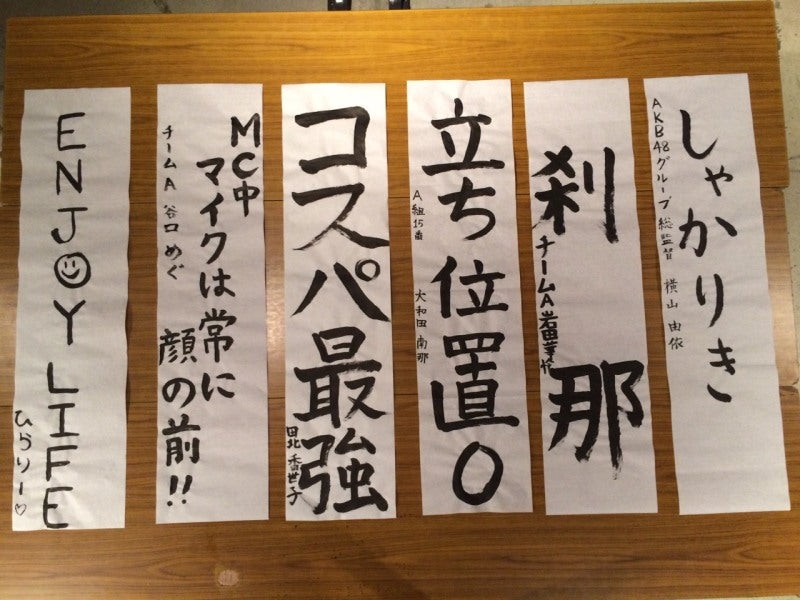 しゃかりき
AKB48グループ 総監督 横山 由依
刹那
チームA 岩田華怜
立ち位置0
A組15番 大和田 南那
コスパ最強
田北 香世子
MC中
マイクは常に
顔の前!!
チームA 谷口 めぐ
ENJOY LIFE
ひらりー♡